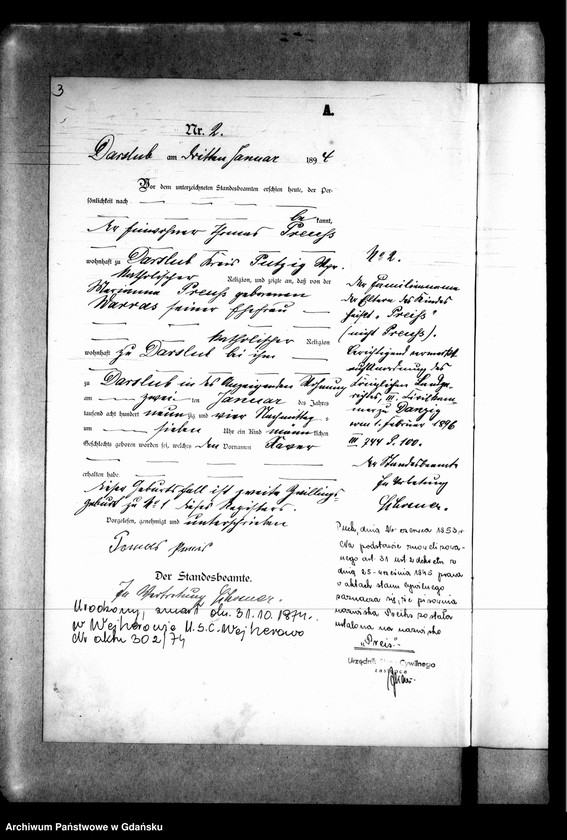 3
A.
Nr. 2.
Darslub am dritten Januar 1894
Vor dem unterzeichneten Standesbeamten erschien heute, der Per-
sönlichkeit nach
be kannt,
der Einwohner Thomas Preuß
wohnhaft zu Darslub Kreis Putzig Wpr.
katholischer Religion, und zeigte an, daß von der
Marianna Preuß geborenen
Warras seiner Ehefrau
katholischer Religion
wohnhaft zu Darslub bei ihm
zu Darslub in des Anzeigenden Wohnung
am zwei ten Januar des Jahres
tausend acht hundert neun zig und vier Nachmittag s
um sieben Uhr ein Kind männ lichen
Geschlechts geboren worden sei, welches den Vornamen Xaver
erhalten habe.
Dieser Geburtsfall ist zweite Zwillings-
geburt zu No 1 dieses Registers.
Vorgelesen, genehmigt und unterschrieben
Tomas
Der Standesbeamte.
In Vertretung
No 2.
Der Familienname
der Eltern des Kindes
heißt „Preiß"
(nicht Preuß).
Berichtigend vermerkt
auf Anordnung des
Königlichen Landge-
richtes, III. Civilkam-
mer zu Danzig
vom 1. Februar 1896
III 744 S. 100.
Der Standesbeamte
In Vertretung
Puck, dnia czerwca 1953 r
Na podstawie
nego art. 31 ust. 2 dekretu z
dnia 25 września 1945 prawa
o aktach stanu cywilnego
się, że pisownia
nazwiska Preiß została
ustalona na nazwisko
„Preis"
Urzędnik Stanu Cywilnego
zastępca
Urodzony, zmarł dn. 31.10.1974.
w Wejherowie U.S.C. Wejherowo
Nr aktu 302/74
Archiwum Państwowe w Gdańsku